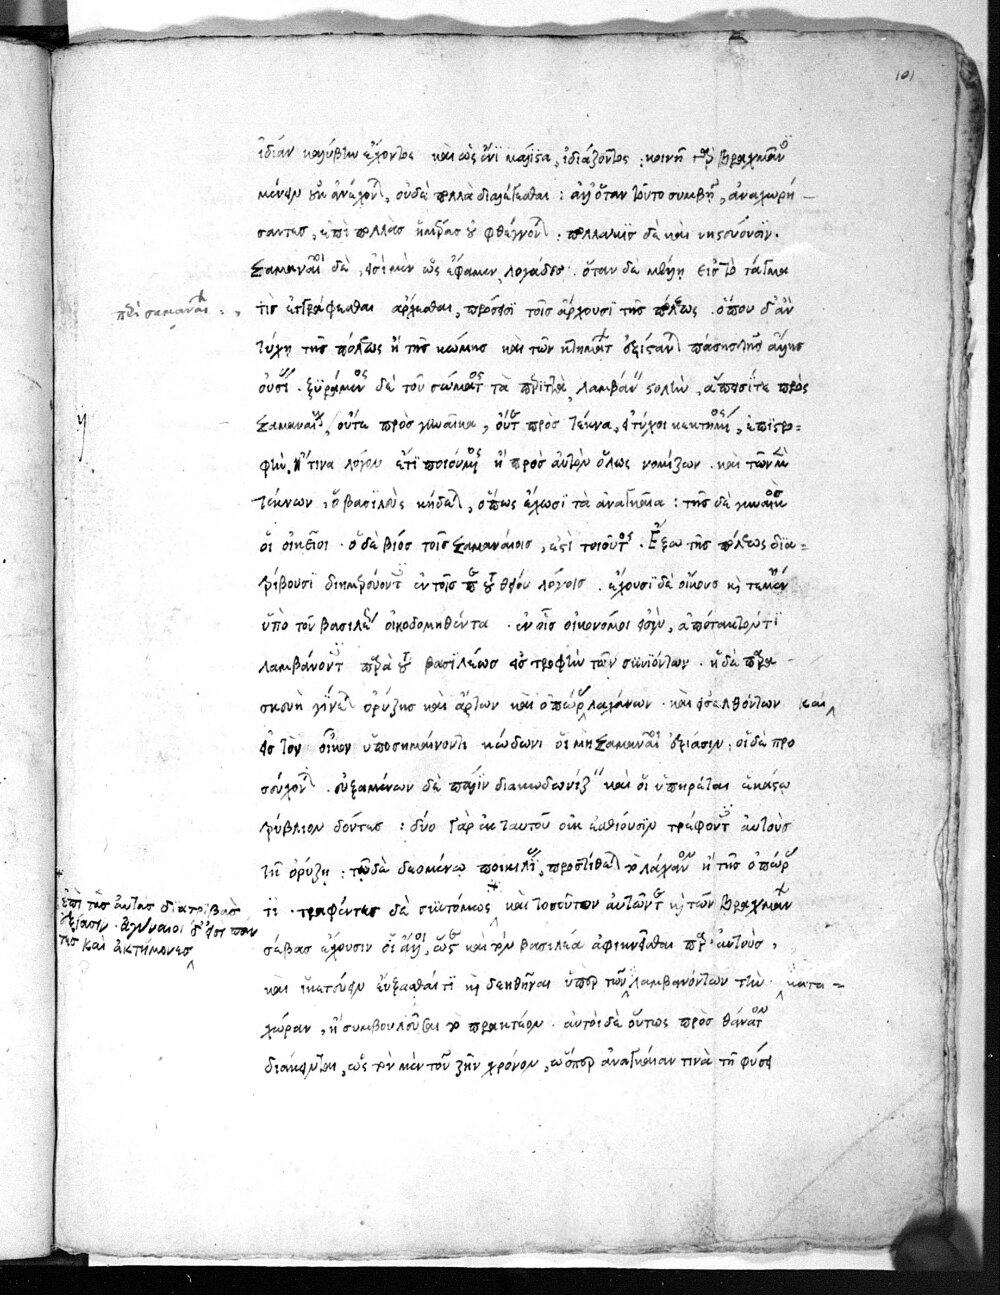 ἰδίαν καλύβην ἔχοντες καὶ ὡς ἔνι μάλιστα, ἰδιάζοντες· κοινῇ γὰρ βραχμᾶνες
μένειν οὐκ ἀνέχονται, οὐδὲ πολλὰ διαλέγεσθαι: ἀλλ' ὅταν τοῦτο συμβῇ, ἀναχωρή-
σαντες, ἐπὶ πολλὰς ἡμέρας οὐ φθέγγονται· πολλάκις δὲ καὶ νηστεύουσιν.
Σαμαναῖοι δὲ, εἰσὶ μὲν ὡς ἔφαμεν, λογάδες· ὅταν δὲ μέλλῃ εἰς τὸ τάγμα
τὶς ἐγγράφεσθαι ἄρχεσθαι, πρόσεισι τοῖς ἄρχουσι τῆς πόλεως· ὅπου δ' ἂν
περὶ σαμαναίων
τύχῃ τῆς πόλεως ἢ τῆς κώμης καὶ τῶν κτημάτων ἐξίσταται πάσης τῆς ἄλλης
οὐσίας· ξυράμενος δὲ τοῦ σώματος τὰ περιττὰ, λαμβάνει στολὴν, ἄπεισί τε πρὸς
Σαμαναίους, οὔτε πρὸς γυναῖκα, οὔτε πρὸς τέκνα, εἰ τύχοι κεκτημένος, ἐπιστρο-
φὴν, ἤ τινα λόγον ἔτι ποιούμενος ἢ πρὸς αὐτὸν ὅλως νομίζων· καὶ τῶν μὲν
τέκνων, ὁ βασιλεὺς κήδεται, ὅπως ἔχωσι τὰ ἀναγκαῖα: τῆς δὲ γυναικὸς
οἱ οἰκεῖοι· ὁ δὲ βίος τοῖς Σαμαναίοις, ἐστὶ τοιοῦτος· Ἔξω τῆς πόλεως δια-
τρίβουσι διημερεύοντες ἐν τοῖς περὶ τοῦ θείου λόγοις· ἔχουσι δὲ οἴκους καὶ τεμένη
ὑπὸ τοῦ βασιλέως οἰκοδομηθέντα· ἐν οἷς οἰκονόμοι εἰσὶν, ἀπότακτόν τι
λαμβάνοντες παρὰ τοῦ βασιλέως εἰς τροφὴν τῶν συνιόντων· ἡ δὲ παρα-
σκευὴ γίνεται ὀρύζης καὶ ἄρτων καὶ ὀπώρας λαχάνων· καὶ εἰσελθόντων καὶ
εἰς τὸν οἶκον ὑποσημαίνοντι κώδωνι οἱ μὴ Σαμαναῖοι ἐξίασιν· οἱ δὲ προ
σεύχονται· εὐξαμένων δὲ πάλιν διακωδωνίζει καὶ οἱ ὑπηρέται ἑκάστῳ
τρύβλιον δόντες: δύο γὰρ ἐκ ταυτοῦ οὐκ ἐσθίουσιν τρέφουσιν αὐτοὺς
τῇ ὀρύζῃ: τῷ δὲ δεομένῳ ποικιλίας, προστίθεται τὸ λάχανον ἢ τῆς ὀπώρας
τὶ· τραφέντες δὲ συντόμως καὶ τοσοῦτον αὐτῶν τε καὶ τῶν βραχμάνων
ἐπὶ τὰς αὐτὰς διατριβὰς
ἐξίασιν· ἀγύναιοι δ' εἰσὶ πάν
τες καὶ ἀκτήμονες
σέβας ἔχουσιν οἱ ἄλλοι, ὥστε καὶ τὸν βασιλέα ἀφικνεῖσθαι παρ' αὐτοὺς,
καὶ ἱκετεύειν εὔξασθαί τι καὶ δεηθῆναι ὑπὲρ τῶν λαμβανόντων τὴν κατα-
χώραν, ἢ συμβουλεῦσαι τὸ πρακτέον· αὐτοὶ δὲ οὕτως πρὸς θάνατον
διάκεινται, ὡς τὸν μὲν τοῦ ζῆν χρόνον, ὥσπερ ἀναγκαίαν τινὰ τῇ φύσει
101